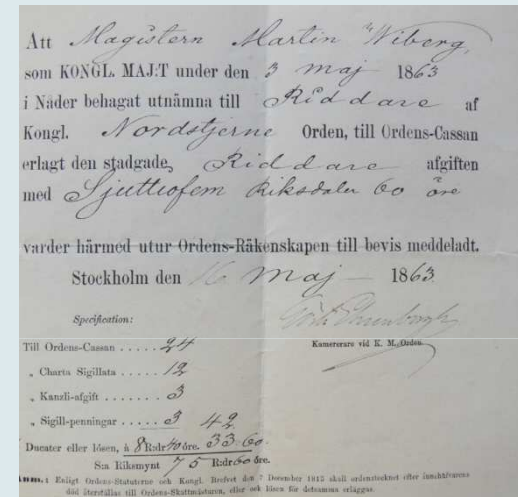 Att Magistern Martin Wiberg,
som KONGL. MAJ:T under den 3 maj 1863
i Nåder behagat utnämna till Riddare af
Kongl. Nordstjerne Orden, till Ordens-Cassan
erlagt den stadgade Riddare afgiften
med Sjuttiofem Riksdaler 60 öre
varder härmed utur Ordens-Räkenskapen till bevis meddeladt.
Stockholm den 16 maj 1863
Specification:
Till Ordens-Cassan ..... 24
Kamererare vid K. M. Orden.
„ Charta Sigillata ..... 12
„ Kanzli-afgift ..... 3
„ Sigill-penningar ..... 3 42
Ducater eller lösen, à 8 R:dr 40 öre. 33 60
S:a Riksmynt 75 R:dr 60 öre.
Anm.: Enligt Ordens-Statuterne och Kongl. Brefvet den 7 December 1812 skall ordenstecknet efter innehafvarens
död återställas till Ordens-Skattmästaren, eller ock lösen för detsamma erläggas.